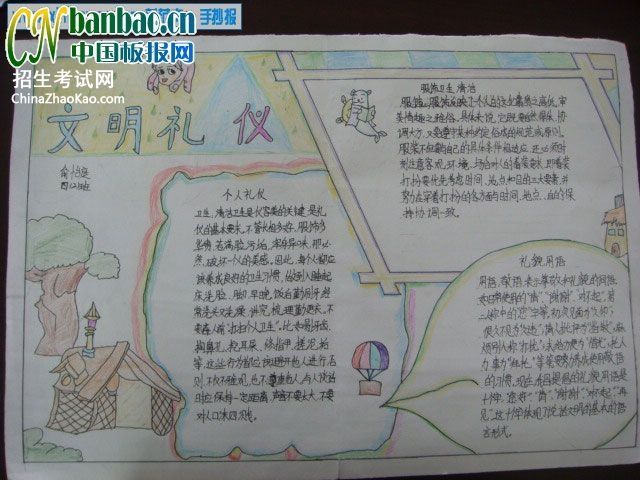 CNbanbao.cn
中国板报网
手抄报
招生考试网
ChinaZhaoKao.com
文明礼仪
四(2)班
服饰卫生清洁
服饰：服饰反映了一个人的文化素质之高低，审
美情趣之雅俗。具体来说，它既要自然得体，协
调大方，又要遵守某种约定俗成的规范或原则。
服装不但要与自己的具体条件相适应，还必须时
刻注意客观环境、场合对人的着装要求，即着装
打扮要优先考虑时间、地点和目的三大要素，并
努力在穿着打扮的各方面与时间、地点、目的保
持协调一致。
个人礼仪
卫生：清洁卫生是仪容美的关键，是礼
仪的基本要求。不管长相多好，服饰多
华贵，若满脸污垢，浑身异味，那必
然破坏一个人的美感。因此，每个人都应
该养成良好的卫生习惯，做到入睡起
床洗脸、脚，早晚、饭后勤刷牙，经
常洗头又洗澡，讲究梳理勤更衣。不
要在人前"打扫个人卫生"。比如剔牙齿、
掏鼻孔、挖耳屎、修指甲、搓泥垢
等，这些行为都应该避开他人进行，否
则，不仅不雅观，也不尊重他人。与人谈话
时应保持一定距离，声音不要太大，不要
对人口沫四溅。
礼貌用语
用语：敬语，表示尊敬和礼貌的词语。
如日常使用的"请"、"谢谢"、"对不起"，第
二人称中的"您"字等。初次见面为"久仰"；
很久不见为"久违"；请人批评为"指教"；麻
烦别人称"打扰"；求给方便为"借光"；托人办
事为"拜托"等等。要努力养成使用敬语
的习惯。现在我国提倡的礼貌用语是
十个字："您好"、"请"、"谢谢"、"对不起"、"再
见"。这十个字体现了说话文明的基本的语
言形式。